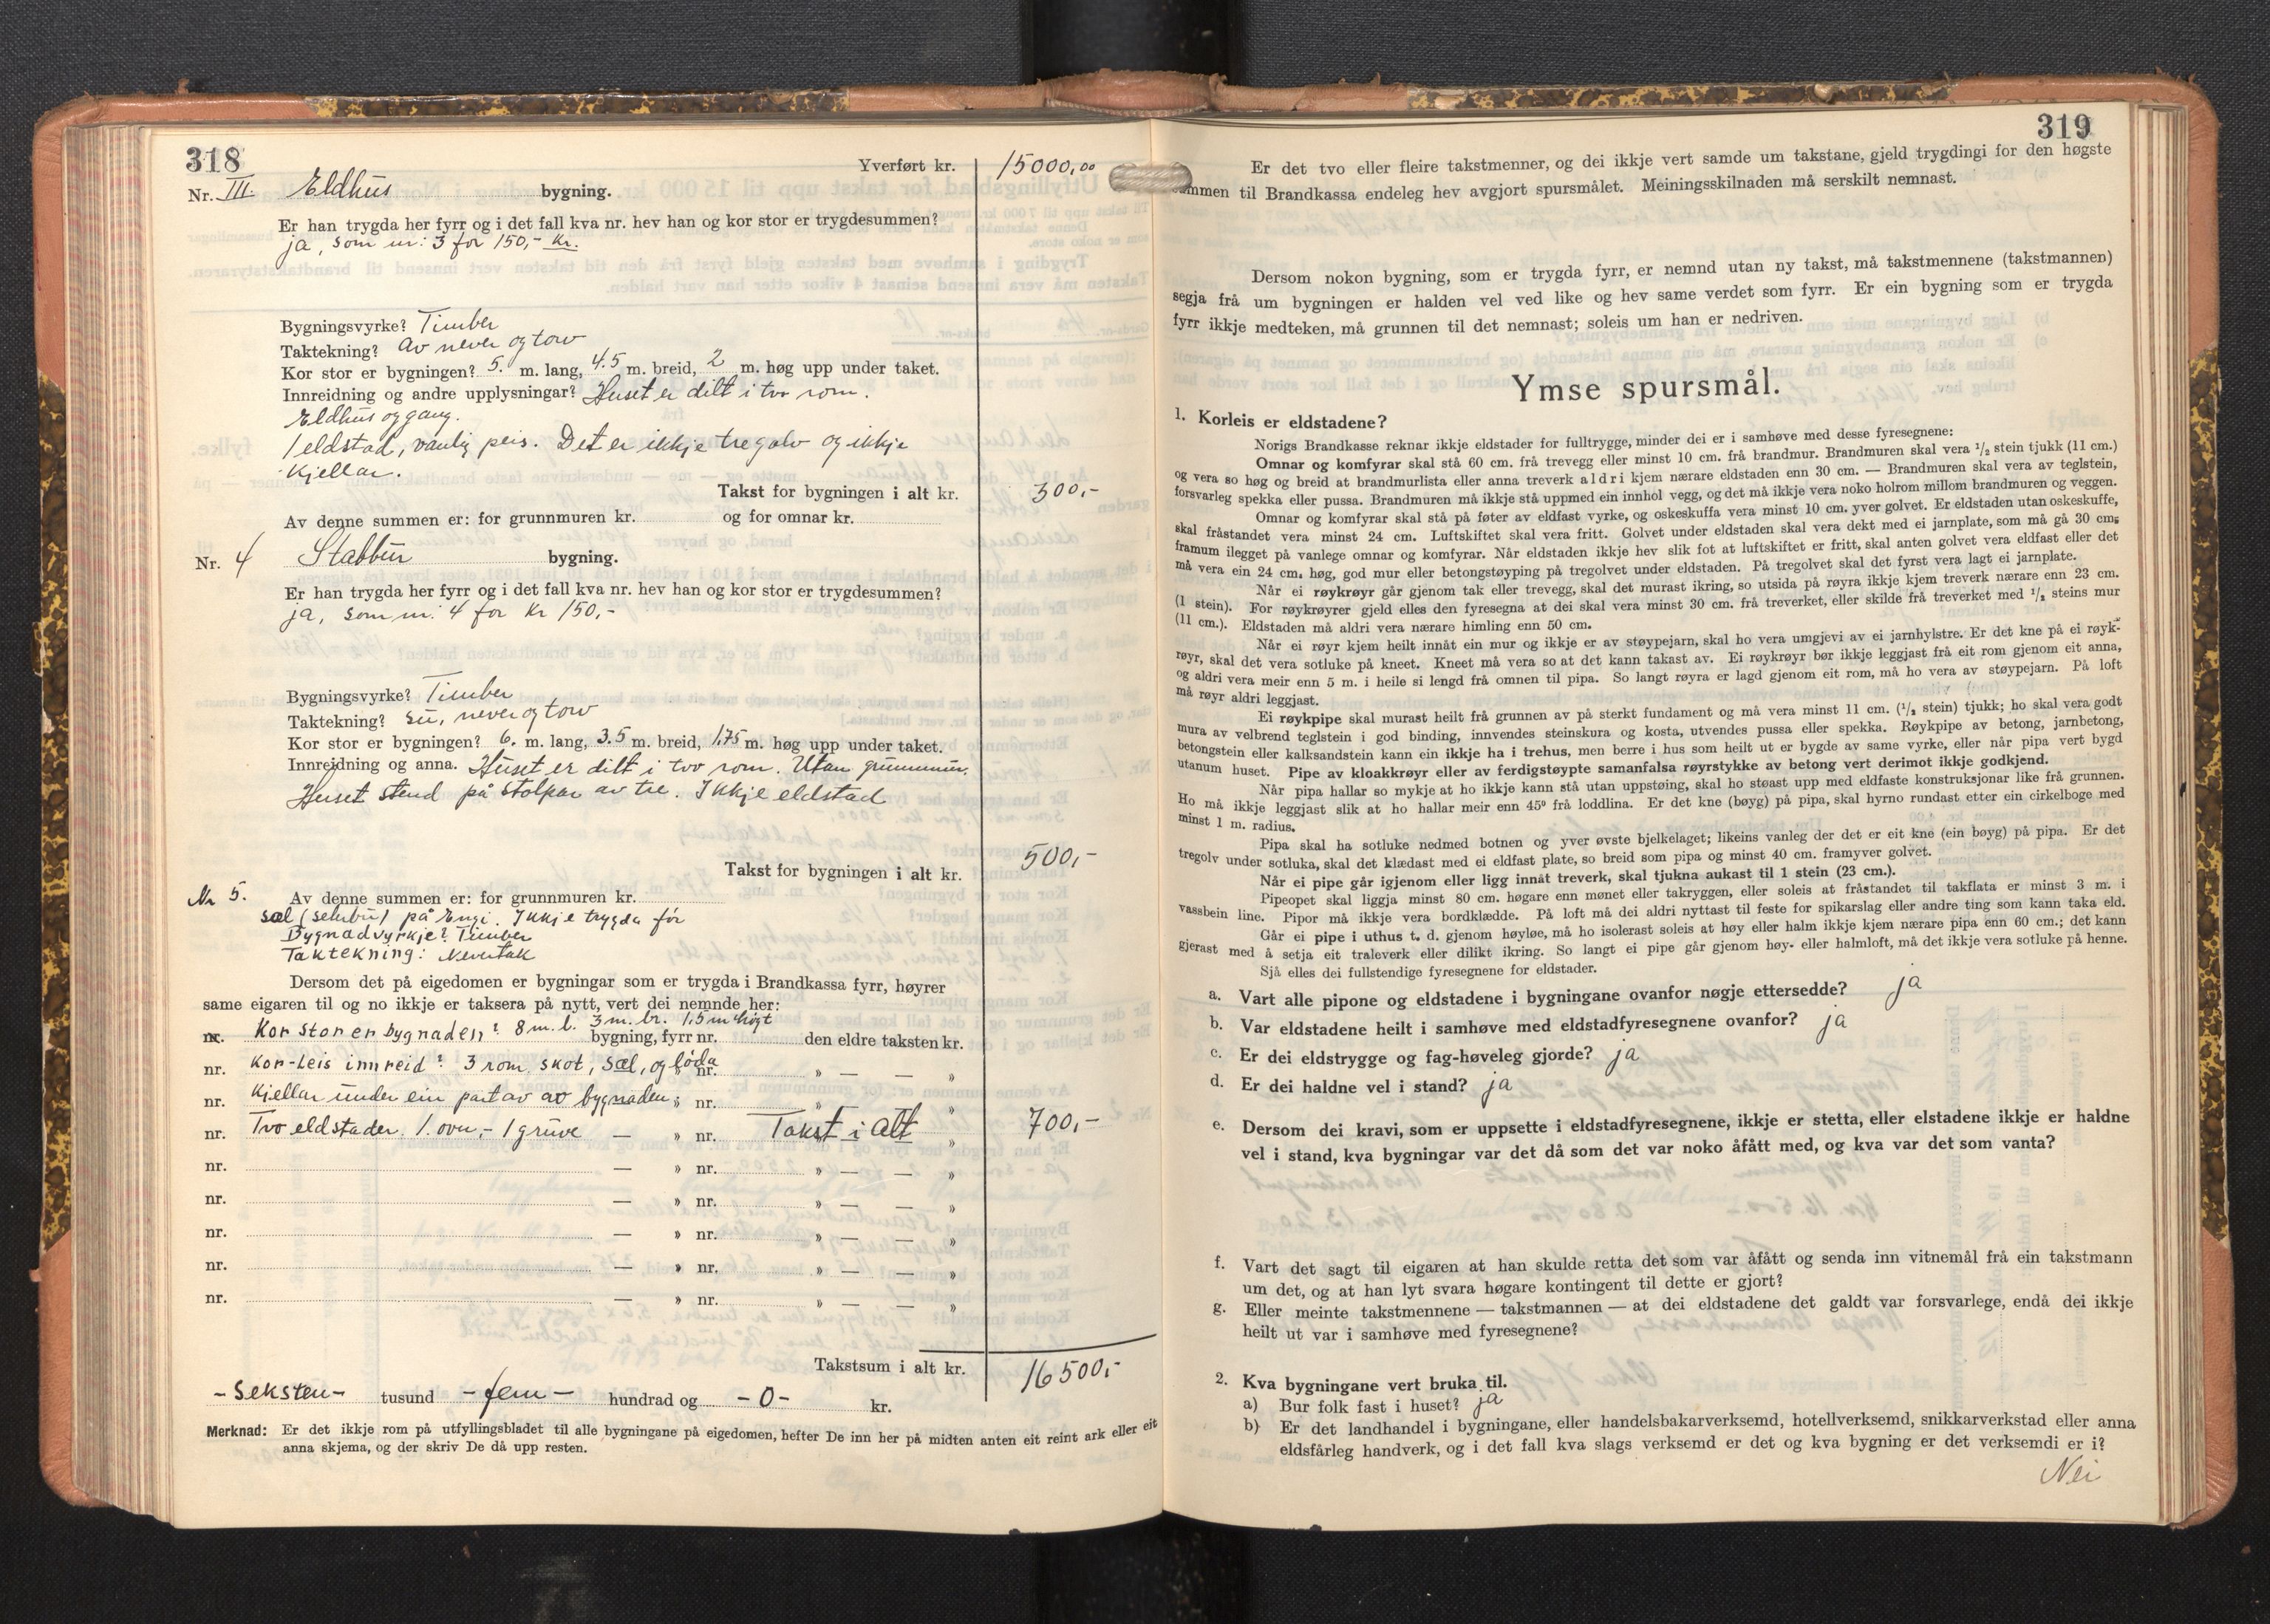 318
Yverført kr. 15000,00
Nr. III. Eldhus bygning.
Er han trygda her fyrr og i det fall kva nr. hev han og kor stor er trygdesummen?
ja, som nr: 3 for 150,- kr.
Bygningsvyrke? Timber
Taktekning? Av never og torv
Kor stor er bygningen? 5. m. lang, 4.5 m. breid, 2 m. høg upp under taket.
Innreidning og andre upplysningar? Huset er dilt i tvo rom.
Eldhus og gang.
1 eldstad, vanlig peis. Det er ikkje tregolv og ikkje
Kjellar.
Takst for bygningen i alt kr. 300,-
Av denne summen er: for grunnmuren kr. og for omnar kr.
Nr. 4 Stabbur bygning.
Er han trygda her fyrr og i det fall kva nr. hev han og kor stor er trygdesummen?
ja, som nr. 4 for kr 150,-
Bygningsvyrke? Timber
Taktekning? Su, never og torv
Kor stor er bygningen? 6. m. lang, 3.5 m. breid, 1,75 m. høg upp under taket.
Innreidning og anna. Huset er dilt i tvo rom. Utan grunnmur.
Huset stend på stolpar av tre. Ikkje eldstad
Takst for bygningen i alt kr. 500,-
Nr 5. Av denne summen er: for grunnmuren kr.
Sæl (selsbu) på Engi. Ikkje trygda før
Bygnadvyrkje? Timber
Taktekning: Nevertak
Dersom det på eigedomen er bygningar som er trygda i Brandkassa fyrr, høyrer
same eigaren til og no ikkje er taksera på nytt, vert dei nemnde her:
nr. Kor stor er bygnaden? 8 m. l. 3 m. br. 1,5 m høgt bygning, fyrr nr. den eldre taksten kr.
nr. Kor-leis innreid? 3 rom, skot, sæl, og løda nr. » — — »
nr. Kjellar under ein part av av bygnaden; nr. » »
nr. Tvo eldstader, 1. ovn,- 1 gruve — » nr. Takst i alt » 700,-
nr. — » nr. » — — »
nr. — » nr. » — — »
nr. — » nr. » — — »
nr. — » nr. » — — »
nr. — » nr. » — — »
Takstsum i alt kr. 16500,-
- Seksten - tusund - fem - hundrad og - 0 - kr.
Merknad: Er det ikkje rom på utfyllingsbladet til alle bygningane på eigedomen, hefter De inn her på midten anten eit reint ark eller eit
anna skjema, og der skriv De då upp resten.
319
Er det tvo eller fleire takstmenner, og dei ikkje vert samde um takstane, gjeld trygdingi for den høgste
summen til Brandkassa endeleg hev avgjort spursmålet. Meiningsskilnaden må serskilt nemnast.
Dersom nokon bygning, som er trygda fyrr, er nemnd utan ny takst, må takstmennene (takstmannen)
segja frå um bygningen er halden vel ved like og hev same verdet som fyrr. Er ein bygning som er trygda
fyrr ikkje medteken, må grunnen til det nemnast; soleis um han er nedriven.
Ymse spursmål.
1. Korleis er eldstadene?
Norigs Brandkasse reknar ikkje eldstader for fulltrygge, minder dei er i samhøve med desse fyresegnene:
Omnar og komfyrar skal stå 60 cm. frå trevegg eller minst 10 cm. frå brandmur. Brandmuren skal vera 1/2 stein tjukk (11 cm.)
og vera so høg og breid at brandmurlista eller anna treverk aldri kjem nærare eldstaden enn 30 cm. — Brandmuren skal vera av teglstein,
forsvarleg spekka eller pussa. Brandmuren må ikkje stå uppmed ein innhol vegg, og det må ikkje vera noko holrom millom brandmuren og veggen.
Omnar og komfyrar skal stå på føter av eldfast vyrke, og oskeskuffa vera minst 10 cm. yver golvet. Er eldstaden utan oskeskuffe,
skal fråstandet vera minst 24 cm. Luftskiftet skal vera fritt. Golvet under eldstaden skal vera dekt med ei jarnplate, som må gå 30 cm.
framum ilegget på vanlege omnar og komfyrar. Når eldstaden ikkje hev slik fot at luftskiftet er fritt, skal anten golvet vera eldfast eller det
må vera ein 24 cm. høg, god mur eller betongstøyping på tregolvet under eldstaden. På tregolvet skal det fyrst vera lagt ei jarnplate.
Når ei røykrøyr går gjenom tak eller trevegg, skal det murast ikring, so utsida på røyra ikkje kjem treverk nærare enn 23 cm.
(1 stein). For røykrøyrer gjeld elles den fyresegna at dei skal vera minst 30 cm. frå treverket, eller skilde frå treverket med 1/2 steins mur
(11 cm.). Eldstaden må aldri vera nærare himling enn 50 cm.
Når ei røyr kjem heilt innåt ein mur og ikkje er av støypejarn, skal ho vera umgjevi av ei jarnhylstre. Er det kne på ei røyk-
røyr, skal det vera sotluke på kneet. Kneet må vera so at det kann takast av. Ei røykrøyr bør ikkje leggjast frå eit rom gjenom eit anna,
og aldri vera meir enn 5 m. i heile si lengd frå omnen til pipa. So langt røyra er lagd gjenom eit rom, må ho vera av støypejarn. På loft
må røyr aldri leggjast.
Ei røykpipe skal murast heilt frå grunnen av på sterkt fundament og må vera minst 11 cm. (1/2 stein) tjukk; ho skal vera godt
mura av velbrend teglstein i god binding, innvendes steinskura og kosta, utvendes pussa eller spekka. Røykpipe av betong, jarnbetong,
betongstein eller kalksandstein kann ein ikkje ha i trehus, men berre i hus som heilt ut er bygde av same vyrke, eller når pipa vert bygd
utanum huset. Pipe av kloakkrøyr eller av ferdigstøypte samanfalsa røyrstykke av betong vert derimot ikkje godkjend.
Når pipa hallar so mykje at ho ikkje kann stå utan uppstøing, skal ho støast upp med eldfaste konstruksjonar like frå grunnen.
Ho må ikkje leggjast slik at ho hallar meir enn 45° frå loddlina. Er det kne (bøyg) på pipa, skal hyrno rundast etter ein cirkelboge med
minst 1 m. radius.
Pipa skal ha sotluke nedmed botnen og yver øvste bjelkelaget; likeins vanleg der det er eit kne (ein bøyg) på pipa. Er det
tregolv under sotluka, skal det klædast med ei eldfast plate, so breid som pipa og minst 40 cm. framyver golvet.
Når ei pipe går igjenom eller ligg innåt treverk, skal tjukna aukast til 1 stein (23 cm.).
Pipeopet skal liggja minst 80 cm. høgare enn mønet eller takryggen, eller soleis at fråstandet til takflata er minst 3 m. i
vassbein line. Pipor må ikkje vera bordklædde. På loft må dei aldri nyttast til feste for spikarslag eller andre ting som kann taka eld.
Går ei pipe i uthus t. d. gjenom høyløe, må ho isolerast soleis at høy eller halm ikkje kjem nærare pipa enn 60 cm.; det kann
gjerast med å setja eit traleverk eller dilikt ikring. So langt ei pipe går gjenom høy- eller halmloft, må det ikkje vera sotluke på henne.
Sjå elles dei fullstendige fyresegnene for eldstader.
a. Vart alle pipone og eldstadene i bygningane ovanfor nøgje ettersedde? ja
b. Var eldstadene heilt i samhøve med eldstadfyresegnene ovanfor? ja
c. Er dei eldstrygge og fag-høveleg gjorde? ja
d. Er dei haldne vel i stand? ja
e. Dersom dei kravi, som er uppsette i eldstadfyresegnene, ikkje er stetta, eller elstadene ikkje er haldne
vel i stand, kva bygningar var det då som det var noko åfått med, og kva var det som vanta?
f. Vart det sagt til eigaren at han skulde retta det som var åfått og senda inn vitnemål frå ein takstmann
um det, og at han lyt svara høgare kontingent til dette er gjort?
g. Eller meinte takstmennene — takstmannen — at dei eldstadene det galdt var forsvarlege, endå dei ikkje
heilt ut var i samhøve med fyresegnene?
2. Kva bygningane vert bruka til.
a) Bur folk fast i huset? ja
b) Er det landhandel i bygningane, eller handelsbakarverksemd, hotellverksemd, snikkarverkstad eller anna
eldsfårleg handverk, og i det fall kva slags verksemd er det og kva bygning er det verksemdi er i?
Nei